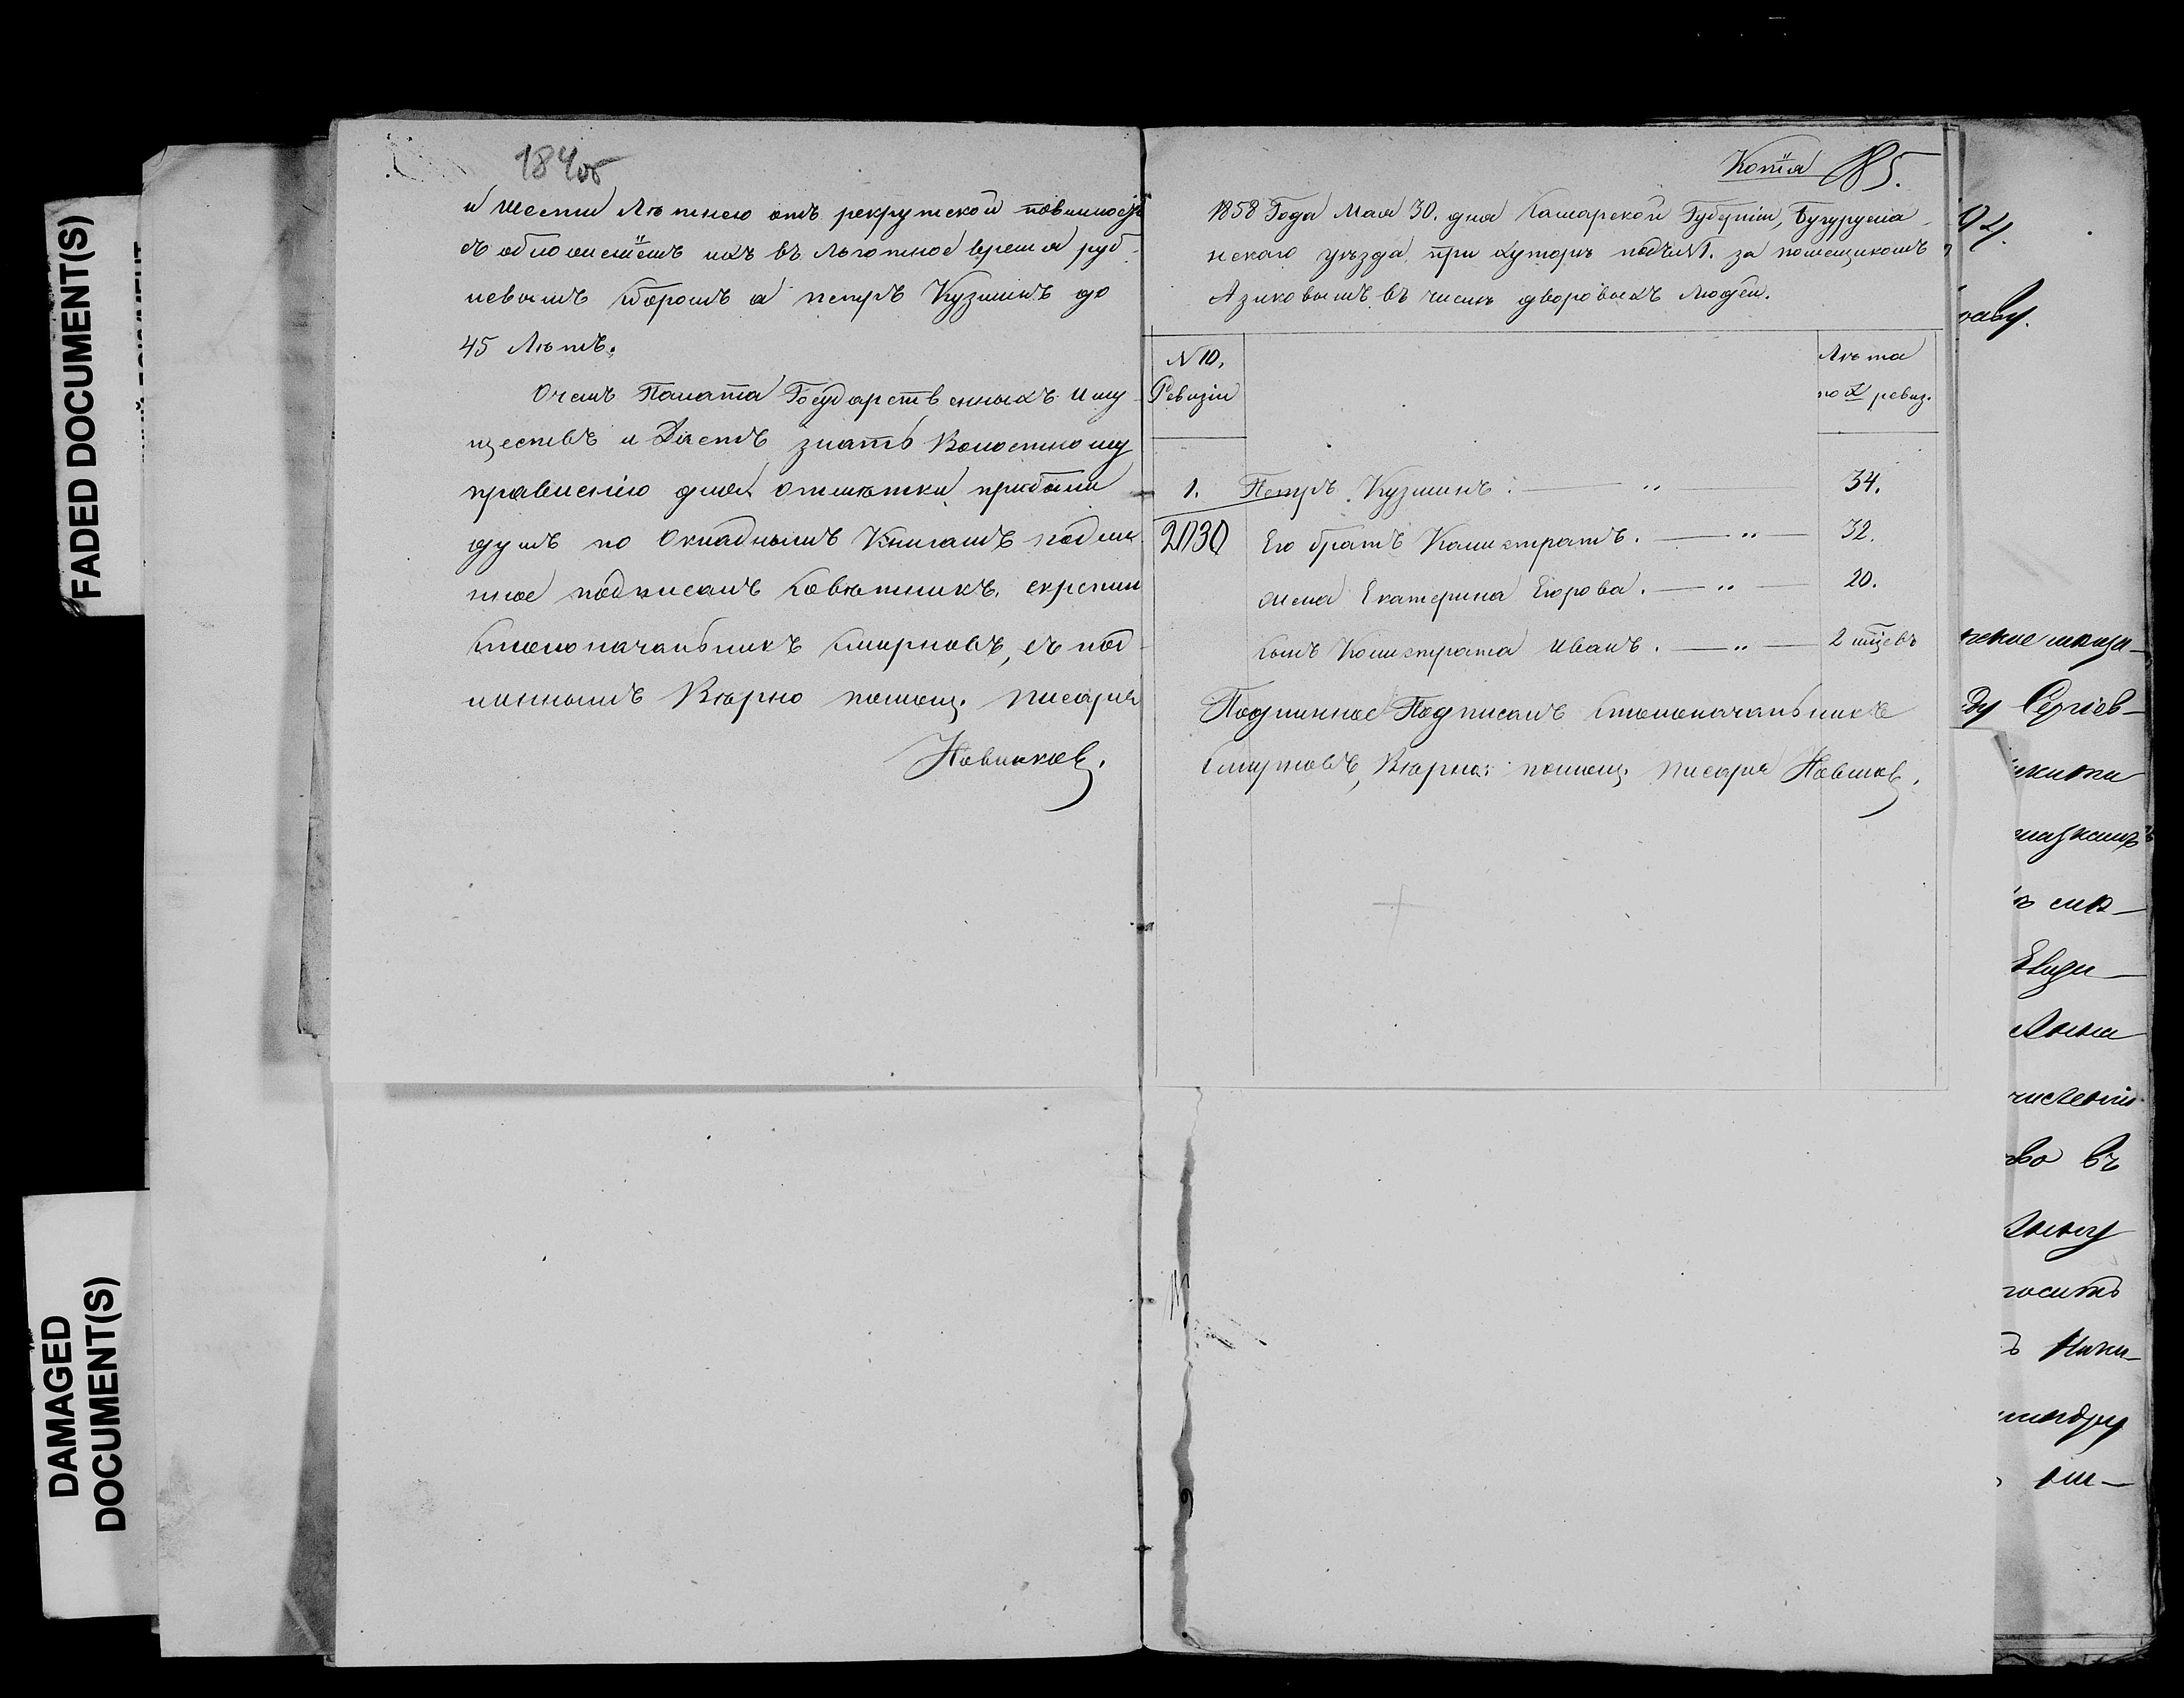 FADED DOCUMENT(S)
DAMAGED
DOCUMENT(S)
184об
и Шести Лѣтнею отъ рекрутской повинности
съ обложеніемъ ихъ въ льготное время руб-
левымъ сборомъ а петръ Кузминъ до
45 Лѣтъ.
О чемъ Палата Государственныхъ Иму-
ществъ и Даетъ знать Волостному
правленію для отмѣтки прибыли
душъ по Окладнымъ Книгамъ подлин
ное подписалъ Совѣтникъ, скрепил
Столоначальникъ Смирновъ, съ под-
линнымъ Вѣрно помощ. писаря
Новиков.
Копія 185.
1858 Года Мая 30. дня Самарской Губерніи, Бугурусла-
нскаго уѣзда, при хуторѣ подъ №1. за помещикомъ
Азиковымъ въ числѣ дворовыхъ людей.
№ 10. Ревизіи
Лѣта по X ревиз.
1. Петръ Кузминъ. — „ 34.
2030 Его братъ Калистратъ. — „ — 32.
жена Екатерина Егорова. — „ — 20.
сынъ Калистрата Иванъ. — „ — 2 мцѣвъ
Подлинное Подписалъ Столоначальникъ
Смирновъ, Вѣрно: помощ. писаря Новиков.
Сергіев-
въ